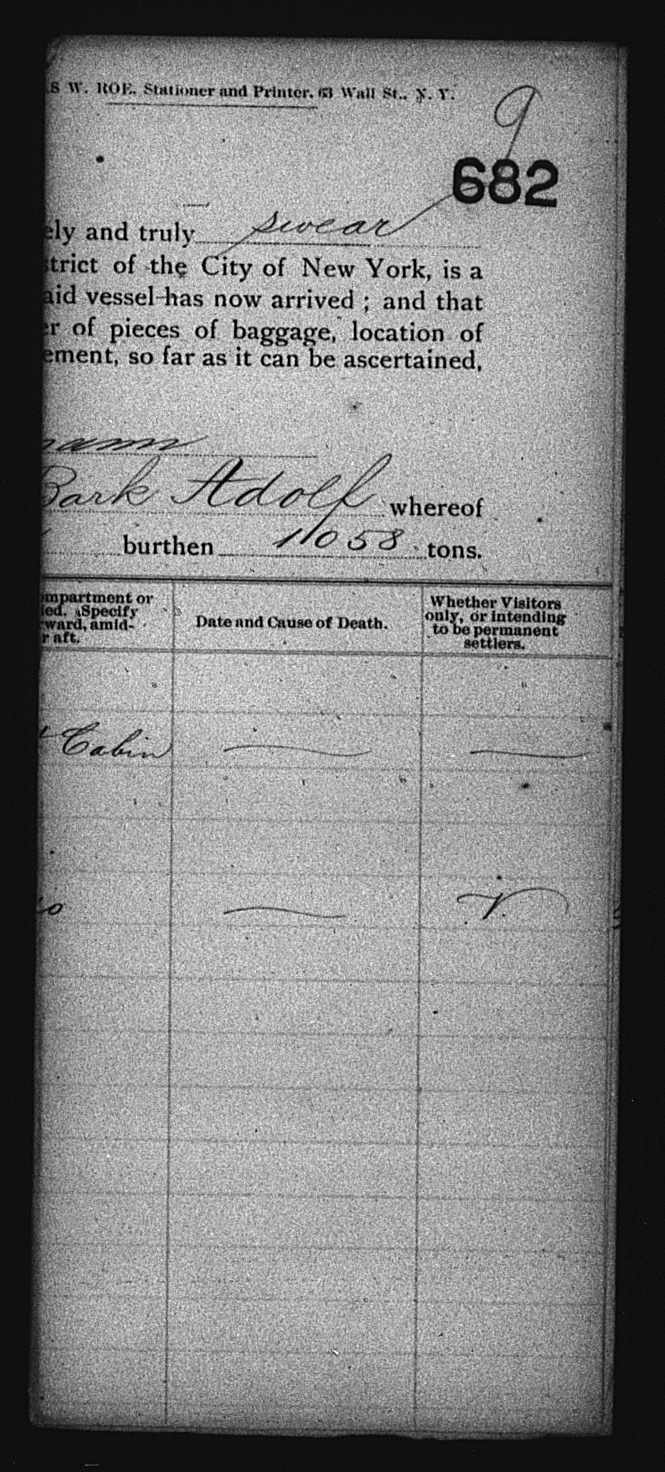 S W. ROE, Stationer and Printer, 63 Wall St., N. Y.
9
682
ely and truly swear
trict of the City of New York, is a
aid vessel has now arrived ; and that
er of pieces of baggage, location of
ement, so far as it can be ascertained,
mann
Bark Adolf whereof
burthen 1058 tons.
ompartment or
ied. Specify
rward, amid-
r aft.
Date and Cause of Death.
Whether Visitors
only, or intending
to be permanent
settlers.
t Cabin